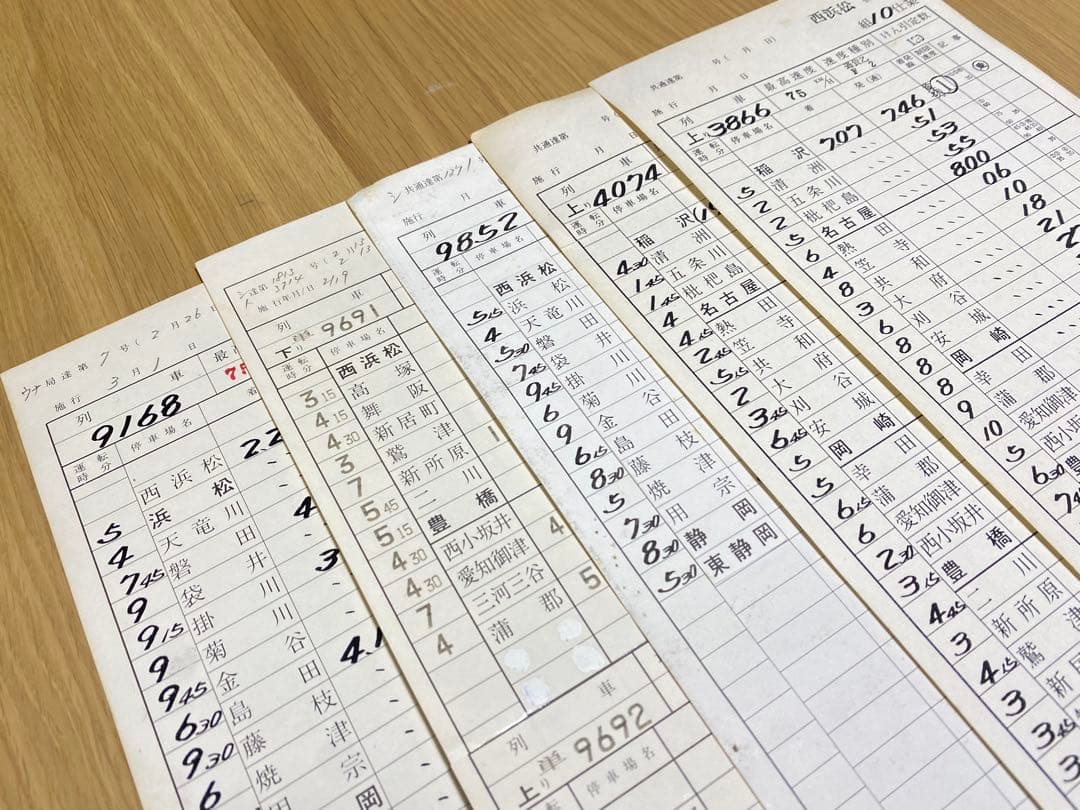 ウナ局達第7号(2月26日
施行 3月1日
列 車 最
9168 75
運転時分 停車場名 着
西浜松 2.2
5 浜松
4 天竜川 4
7 45 磐田
9 袋井 3
9 15 掛川
9 菊川
9 45 金谷 4.1
6 30 島田
9 30 藤枝
6 焼津
用宗
岡
施行年月日 2/19
列車
下り 9691
運転時分 停車場名
西浜松
3 15 高塚
4 15 舞阪
4 30 新居町
3 鷲津 1
7 新所原
5 45 二川
5 15 豊橋
4 30 西小坂井 4
4 30 愛知御津
7 三河三谷 5
4 蒲郡
列車
上り 9692
停車場名
シ 共通達第1291号
施行 月 車
列
9852
運転時分 停車場名
西浜松
5 15 浜松
4 天竜川
5 30 磐田
7 45 袋井
9 45 掛川
6 菊川
9 金谷
6 15 島田
8 30 藤枝
5 焼津
7 30 用宗
8 30 静岡
5 30 東静岡
共通達第 号(
施行 月
列 車
上り 4074
運転時分 停車場名
稲沢
4 30 清洲
1 45 五条川
1 45 枇杷島
4 名古屋
2 45 熱田
5 15 笠寺
2 共和
3 45 大府
6 45 刈谷
5 安城
6 15 岡崎
6 幸田
2 30 蒲郡
3 15 愛知御津
4 45 西小坂井
3 豊橋
4 15 二川
3 新所原
3 45 鷲津
新
西浜松
組10仕業
共通達第 号( 月 日)
施行 月 日
列 車 最高速度 速度種別 けん引定数
上り 3866 75 KM/H
運転時分 停車場名 着 発(通) 着発線 制限速度 記事
稲沢 707 746
5 清洲 51
2 五条川 53
2 枇杷島 55
5 名古屋 800
6 熱田 06
4 笠寺 10
8 共和 18
3 大府 21
6 刈谷
8 安城
8 岡崎
9 幸田
10 蒲郡
5 愛知御津
6 30 西小坂井
豊